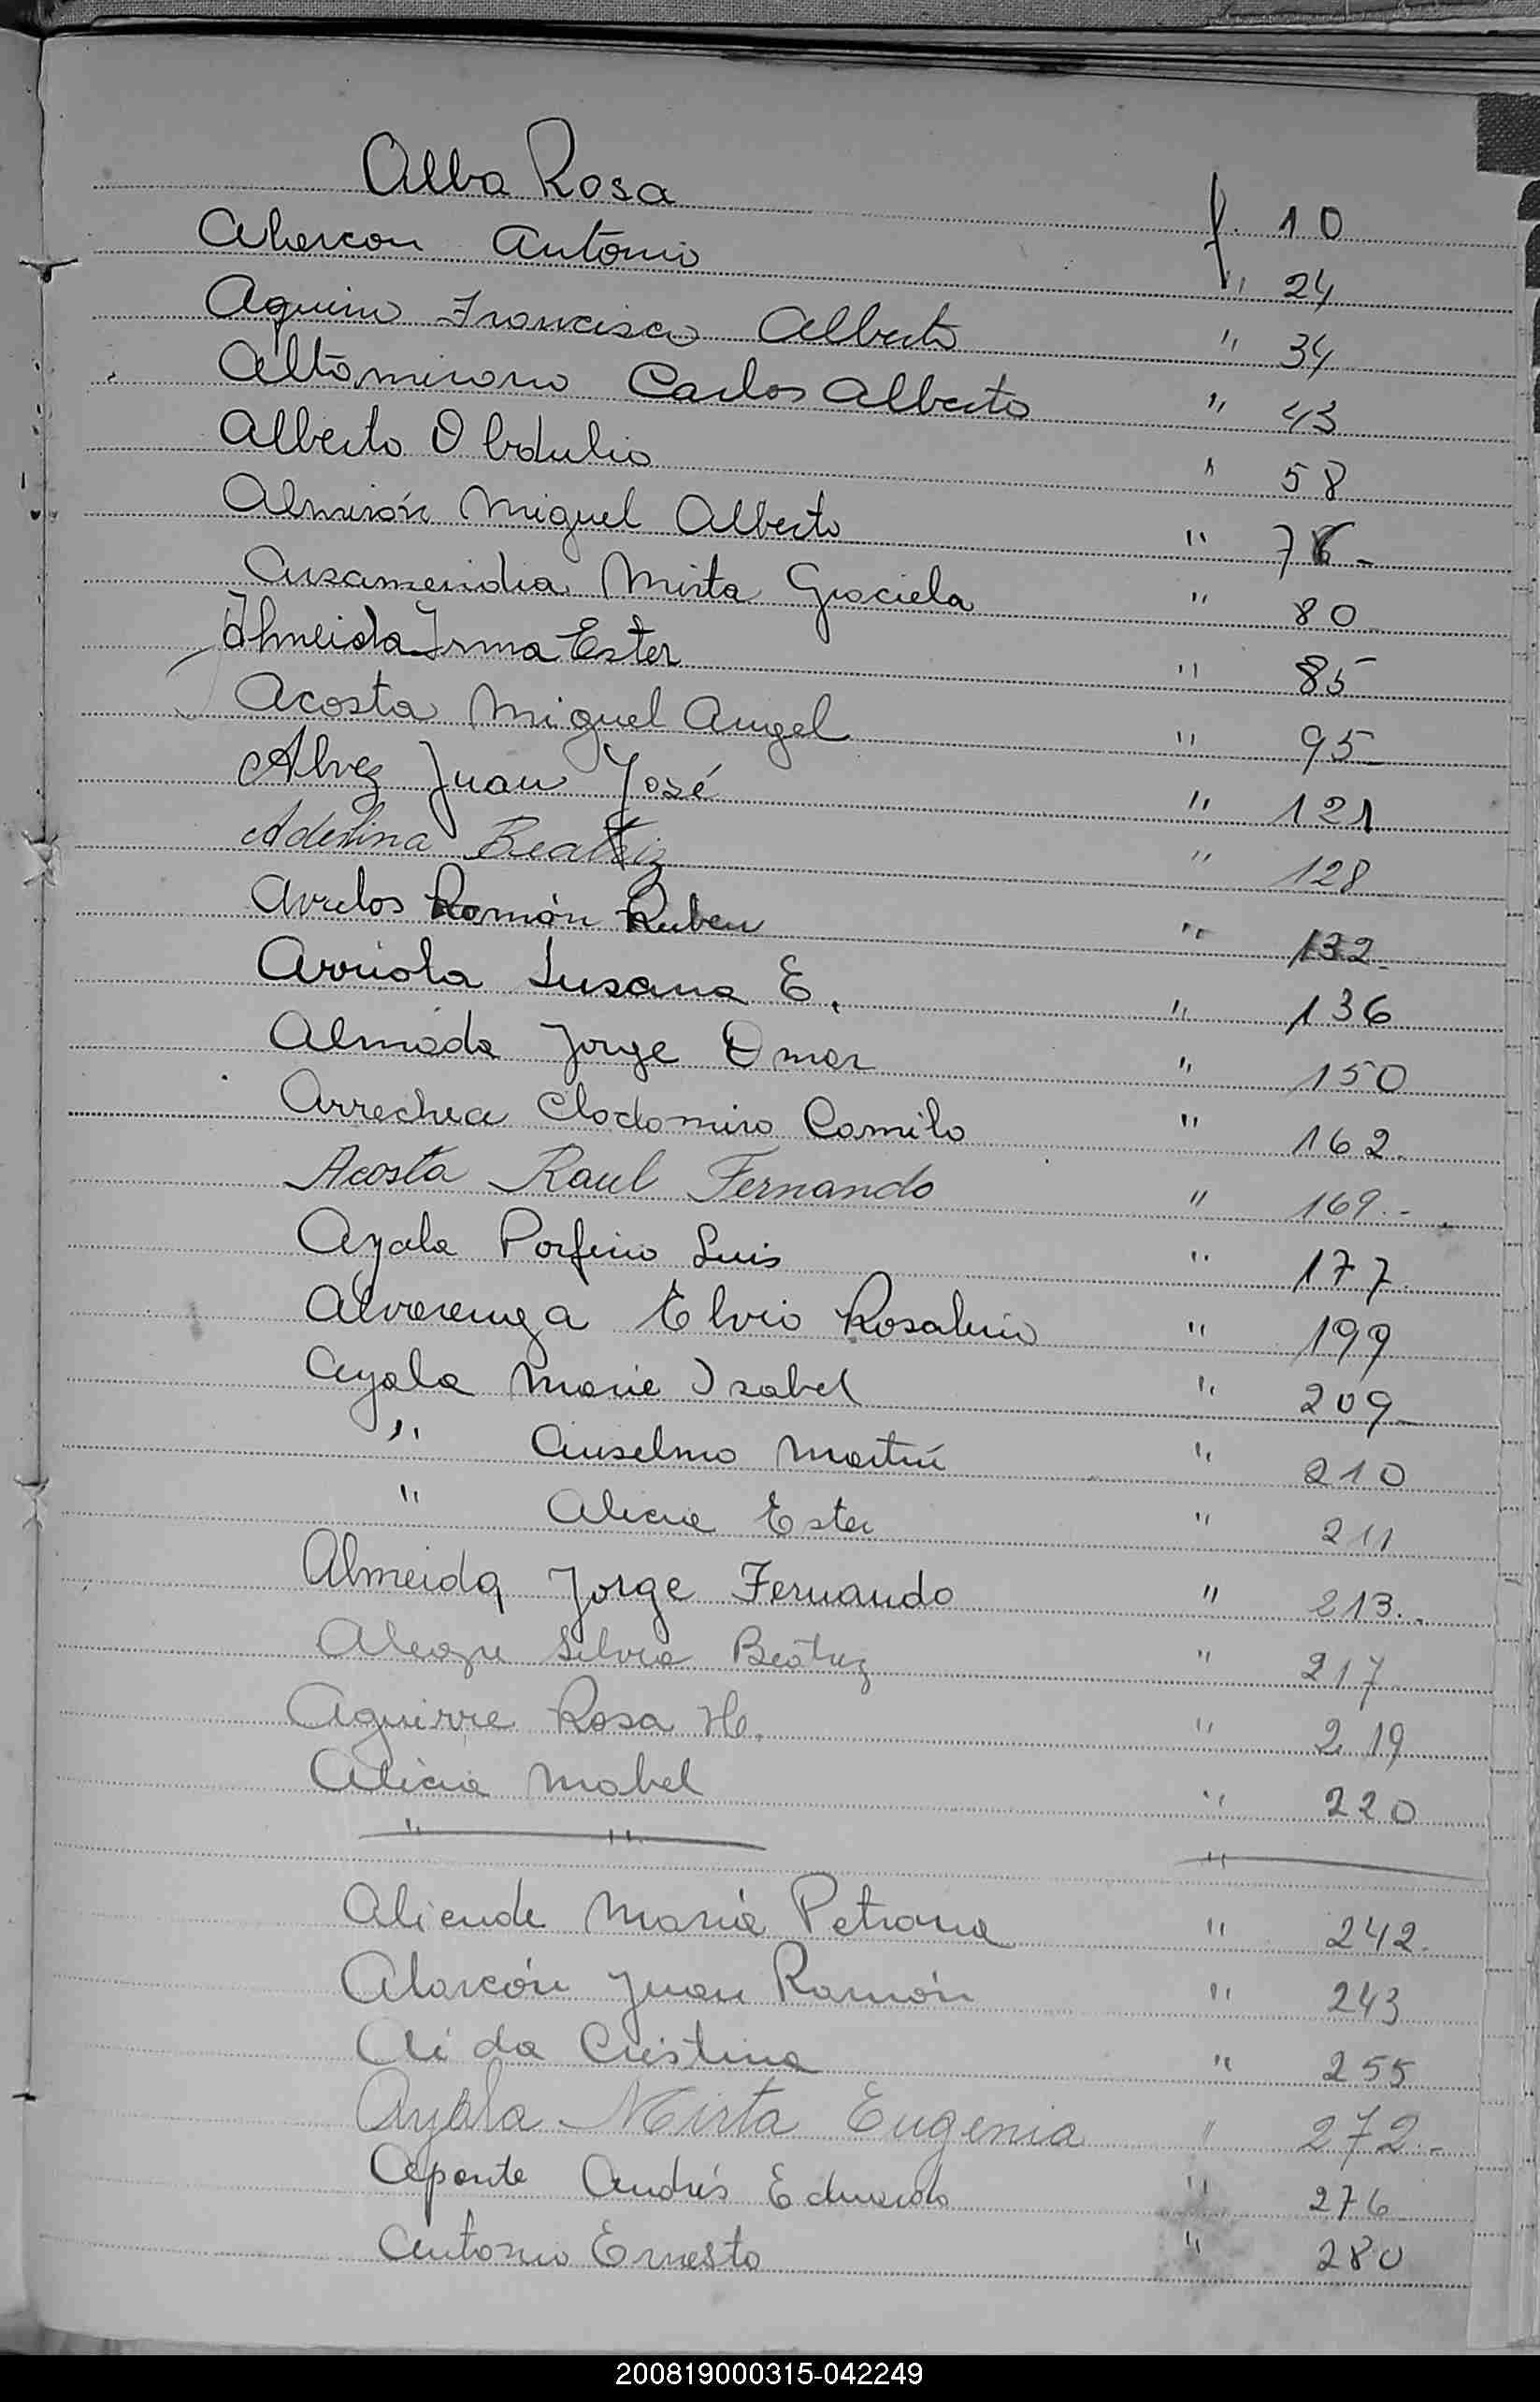 Alba Rosa f. 10
Alarcon Antonio " 24
Aquino Francisco Alberto " 34
Altamirano Carlos Alberto " 43
Alberto Obdulio " 58
Almirón Miguel Alberto " 76-
Mirta Graciela " 80-
Almeida Irma Ester " 85-
Acosta Miguel Angel " 95-
Alvez Juan José " 121
Adelina Beatriz " 128
Avelos Román Ruben " 132-
Arriola Susana E. " 136
Almada Jorge Omar " 150
Arrechea Clodomiro Camilo " 162.
Acosta Raul Fernando " 169.-
Ayala Porfirio Luis " 177.
Alvarenga Elvio Rosalino " 199
Ayala Maria Isabel " 209-
" Anselmo Martín " 210
" Alicia Ester " 211
Almeida Jorge Fernando " 213.-
Alegre Silvia Beatriz " 217
Aguirre Rosa H. " 219
Alicia Mabel " 220
" " "
Aliende María Petrona " 242.
Alarcón Juan Ramón " 243
Aida Cristina " 255
Ayala Mirta Eugenia " 272.-
Aponte Andrés Eduardo " 276
Antonio Ernesto " 280
200819000315-042249